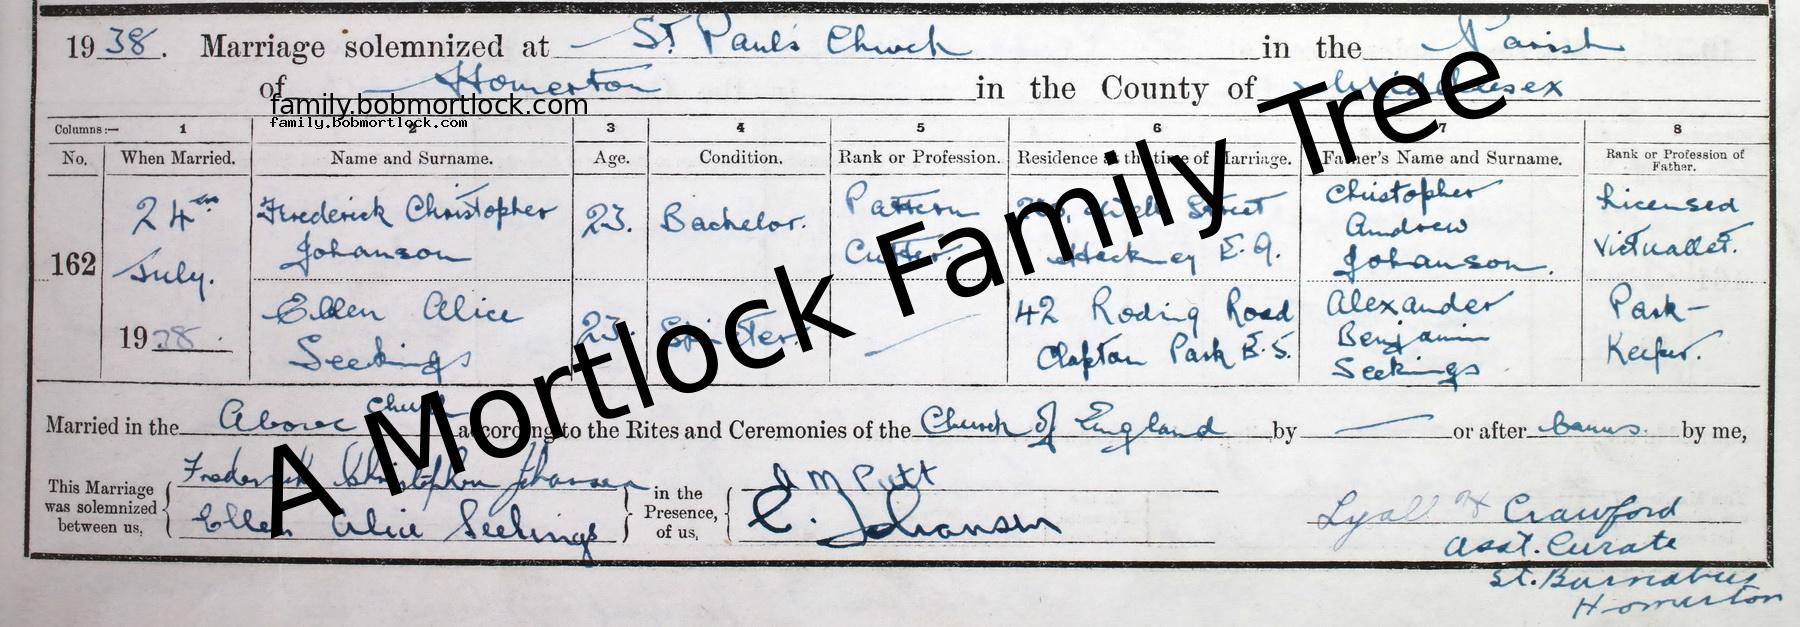 1938. Marriage solemnized at St. Paul's Church in the Parish
of Homerton in the County of Middlesex
family.bobmortlock.com
family.bobmortlock.com
Columns:— 1 2 3 4 5 6 7 8
No. When Married. Name and Surname. Age. Condition. Rank or Profession. Residence at the time of Marriage. Father's Name and Surname. Rank or Profession of Father.
162 24th July. 1938. Frederick Christopher Johanson 23. Bachelor. Pattern Cutter. Street Hackney E.9. Christopher Andrew Johanson. Licensed Victualler.
Ellen Alice Seekings 23. Spinster. 42 Roding Road Clapton Park E.5. Alexander Benjamin Seekings Park-Keeper.
A Mortlock Family Tree
Married in the Above Church according to the Rites and Ceremonies of the Church of England by — or after banns. by me,
This Marriage was solemnized between us, Frederick Christopher Johansen
Ellen Alice Seekings
in the Presence of us, M Putt
C. Johansen
Lyall H Crawford
Asst. Curate
St. Barnabas
Homerton